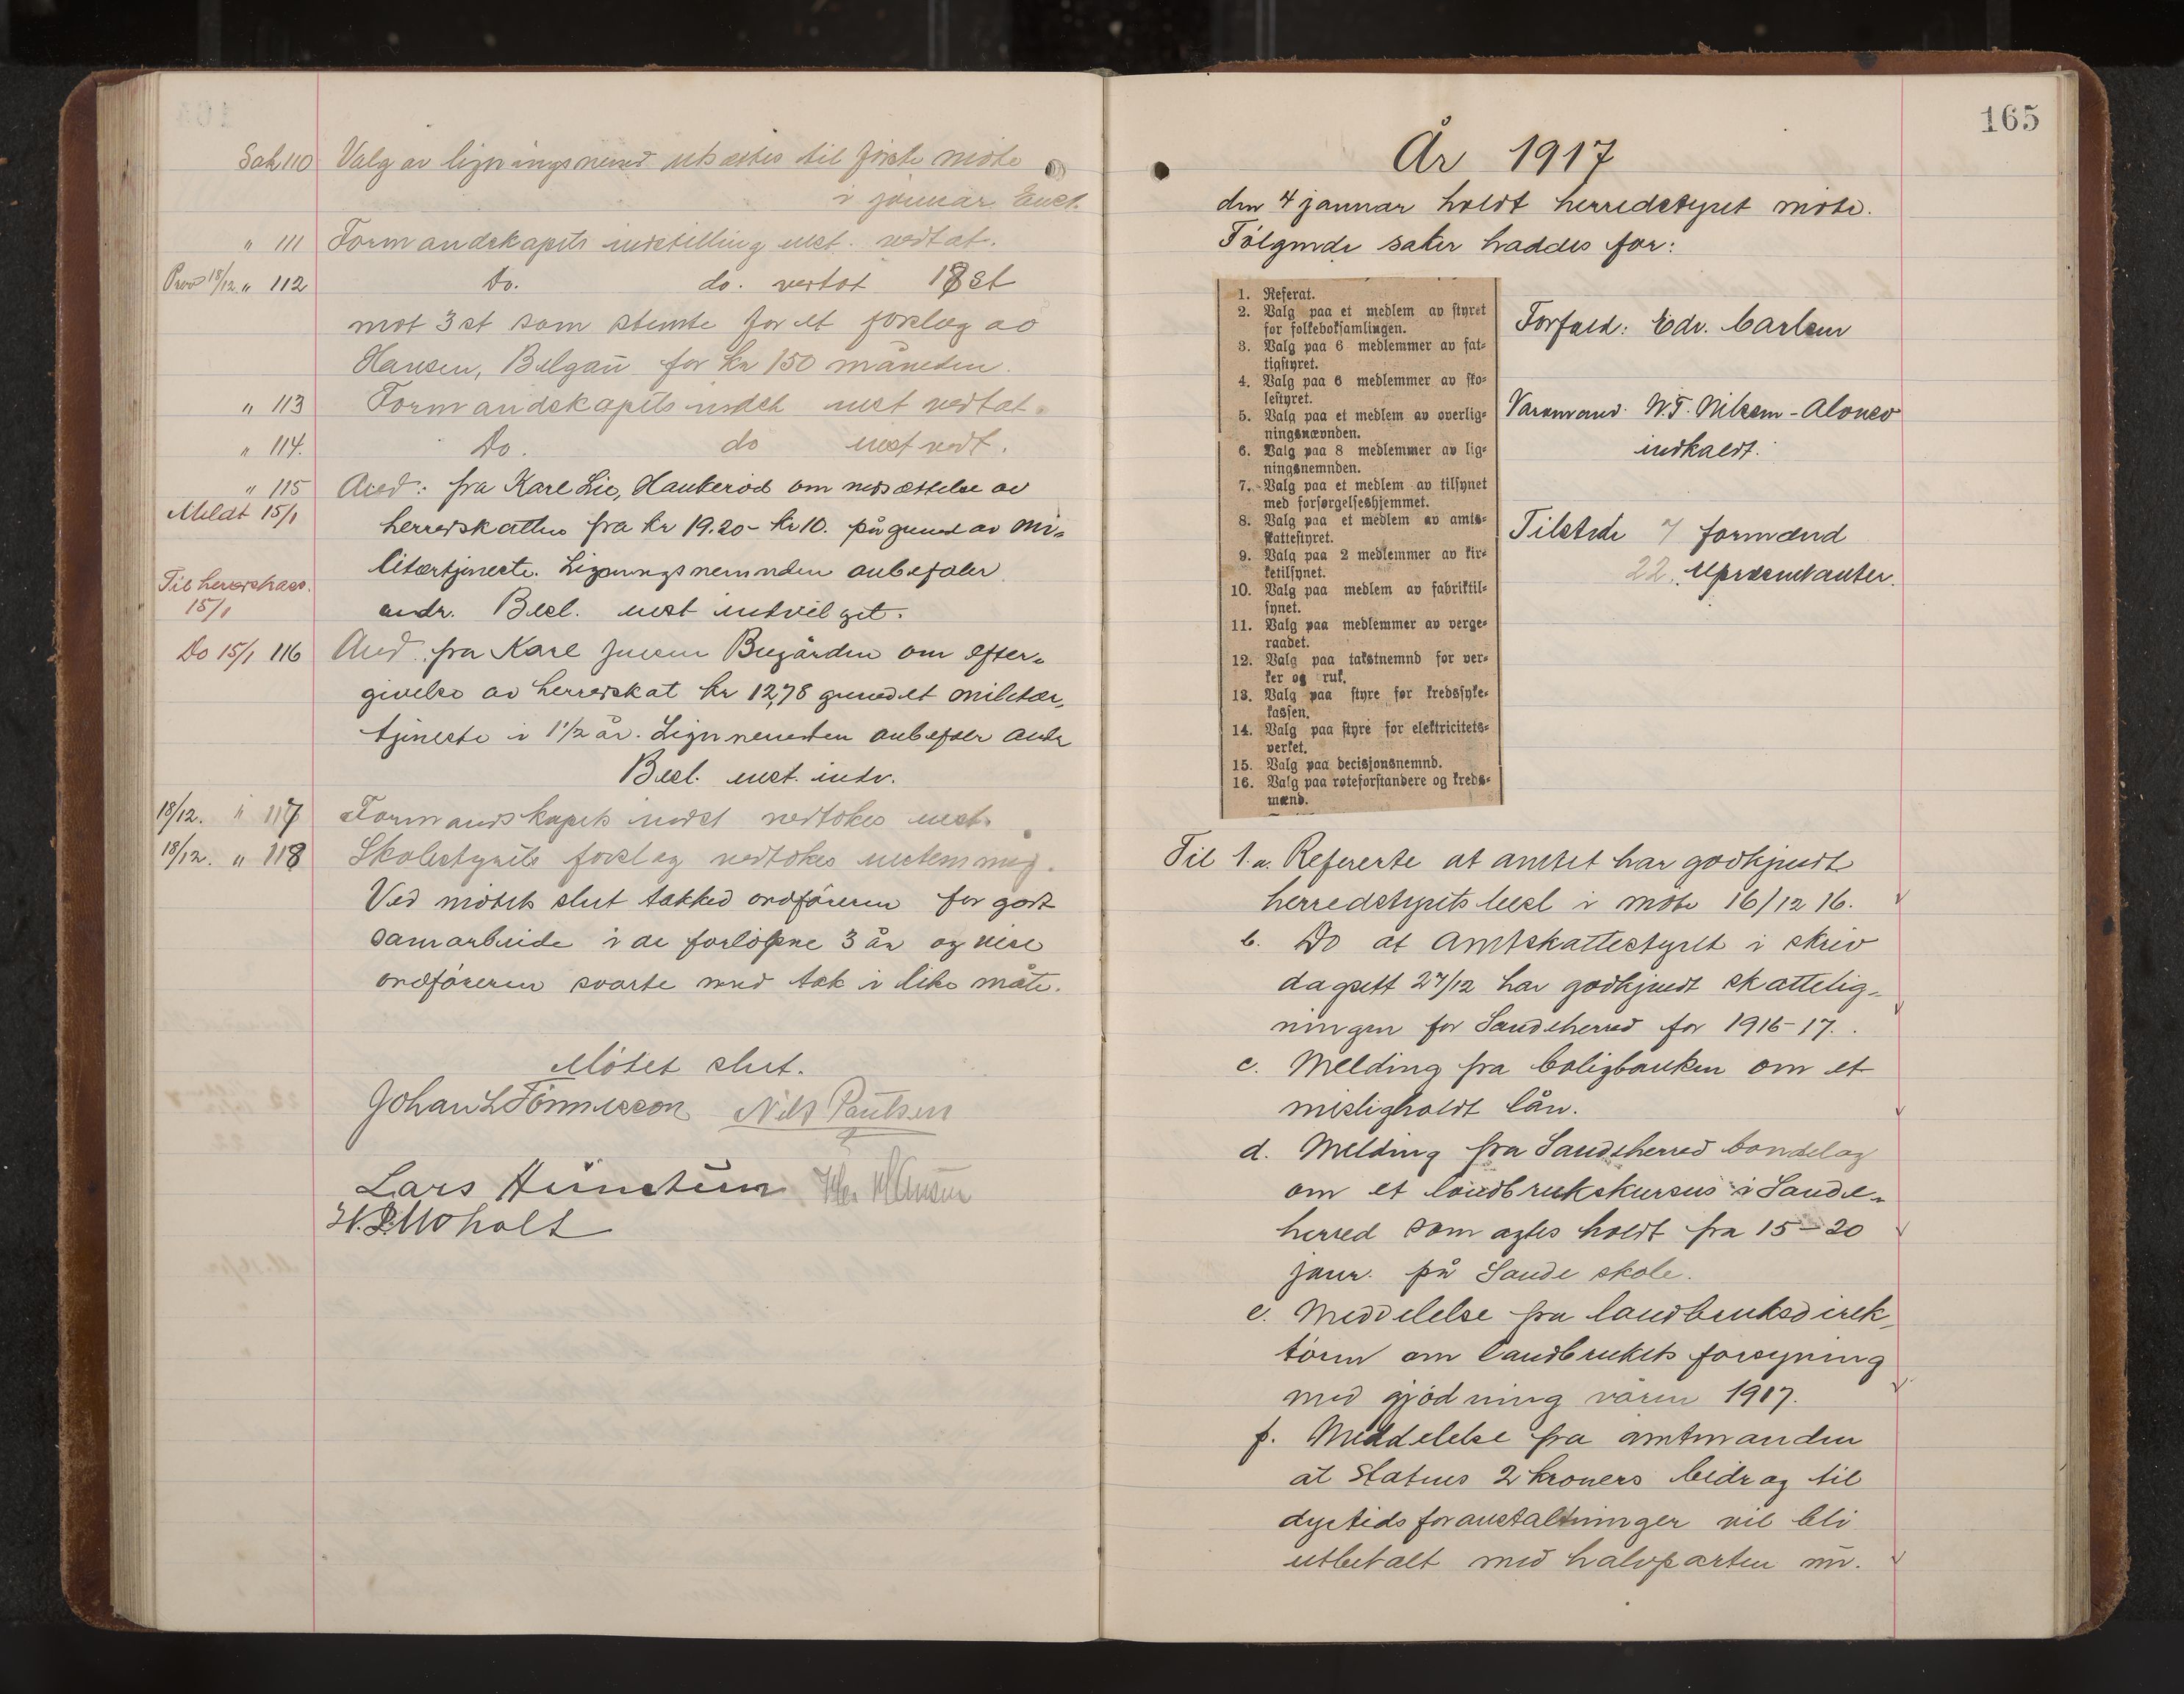 Sak 110 Valg av ligningsnevnd utsættes til første møte
i januar. Enst.
" 111 Formandskapets indstilling enst. vedtat.
Prov 18/12 " 112 Do. do. vertat 18 st
mot 3 st som stemte for et forslag av
Hansen, Belgau for kr 150 måneden.
" 113 Formandskapets indst enst vedtat.
" 114. Do. do enst vedt.
" 115 And: fra Karl Lie, Haukerød om nedsættelse av
Meldt 15/1
herredskatten fra kr 19.20 - kr 10. på grund av mi-
litærtjeneste. Ligningsnemnden anbefaler
Til herredskass. 15/1
andr. Besl. enst indvilget.
Do 15/1 116 And. fra Karl Jensen Bugården om efter-
givelse av herredskat kr 12,78 grundet militær-
tjeneste i 1 1/2 år. Lignnemnden anbefaler andr
Besl. enst. indv.
18/12. " 117 Formandskapets indst vedtokes enst.
18/12. " 118 Skolestyrets forslag vedtokes enstemmig.
Ved møtets slut takket ordføreren for godt
samarbeide i de forløpne 3 år og vise
ordføreren svarte med tak i like måte.
Møtet slut.
Johan L Tønnesson Nils Paulsen
Lars Hunstun Hansen
165
År 1917
den 4 januar holdt herredstyret møte.
Følgende saker haddes for:
1. Referat.
2. Valg paa et medlem av styret
for folkeboksamlingen.
3. Valg paa 6 medlemmer av fat-
tigstyret.
4. Valg paa 6 medlemmer av sko-
lestyret.
5. Valg paa et medlem av overlig-
ningsnævnden.
6. Valg paa 8 medlemmer av lig-
ningsnemnden.
7. Valg paa et medlem av tilsynet
med forsørgelseshjemmet.
8. Valg paa et medlem av amts-
skattestyret.
9. Valg paa 2 medlemmer av kir-
ketilsynet.
10. Valg paa medlem av fabriktil-
synet.
11. Valg paa medlemmer av verge-
raadet.
12. Valg paa takstnemnd for ver-
ker og ruk.
13. Valg paa styre for kredssyke-
kassen.
14. Valg paa styre for elektricitets-
verket.
15. Valg paa decisjonsnemnd.
16. Valg paa roteforstandere og kreds-
mænd.
Forfald: Edv. Carlsen
Varamand: N.T. Nilsen - Alonso
indkaldt.
Tilstede 7 formænd
22 repræsentanter.
Til 1.a. Refererte at amtet har godkjendt
herredstyrets besl i møte 16/12 16.
b. Do at Amtskattestyret i skriv
dagsett 27/12 har godkjendt skattelig-
ningen for Sandeherred for 1916-17.
c. Melding fra boligbanken om et
misligholdt lån.
d. Melding fra Sandeherred bondelag
om et landbrukskursus i Sande-
herred som agtes holdt fra 15-20
janr. på Sande skole.
e. Meddelelse fra landbruksdirek-
tøren om landbrukets forsyning
med gjødning våren 1917.
f. Meddelelse fra amtmanden
at Statens 2 kroners bidrag til
dyrtidsforanstaltninger vil bli
utbetalt med halvparten nu.